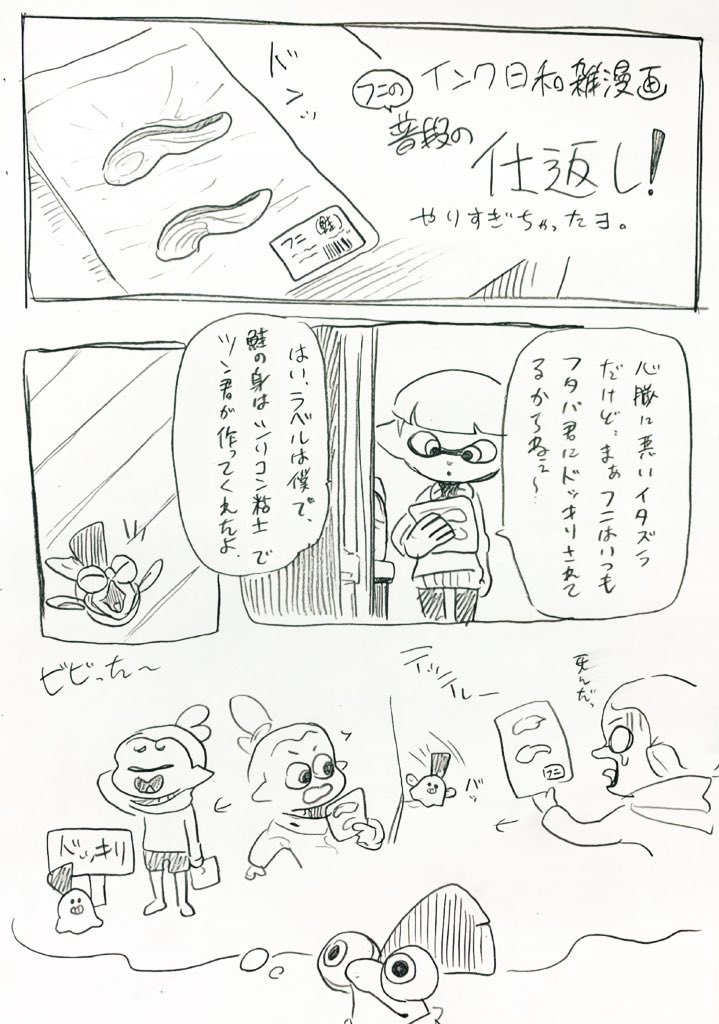 ドンッ
インク日和雑漫画
フニの
普段の
仕返し!
やりすぎちゃったヨ。
フニ
鮭
心臓に悪いイタズラ
だけど…まぁフニはいつも
フタバ君にドッキリされて
るからねぇ〜
はい、ラベルは僕で、
鮭の身はシリコン粘土で
ツン君が作ってくれたよ
死んだっ
フニ
テッテレー
バッ
ビビった〜
ドッキリ